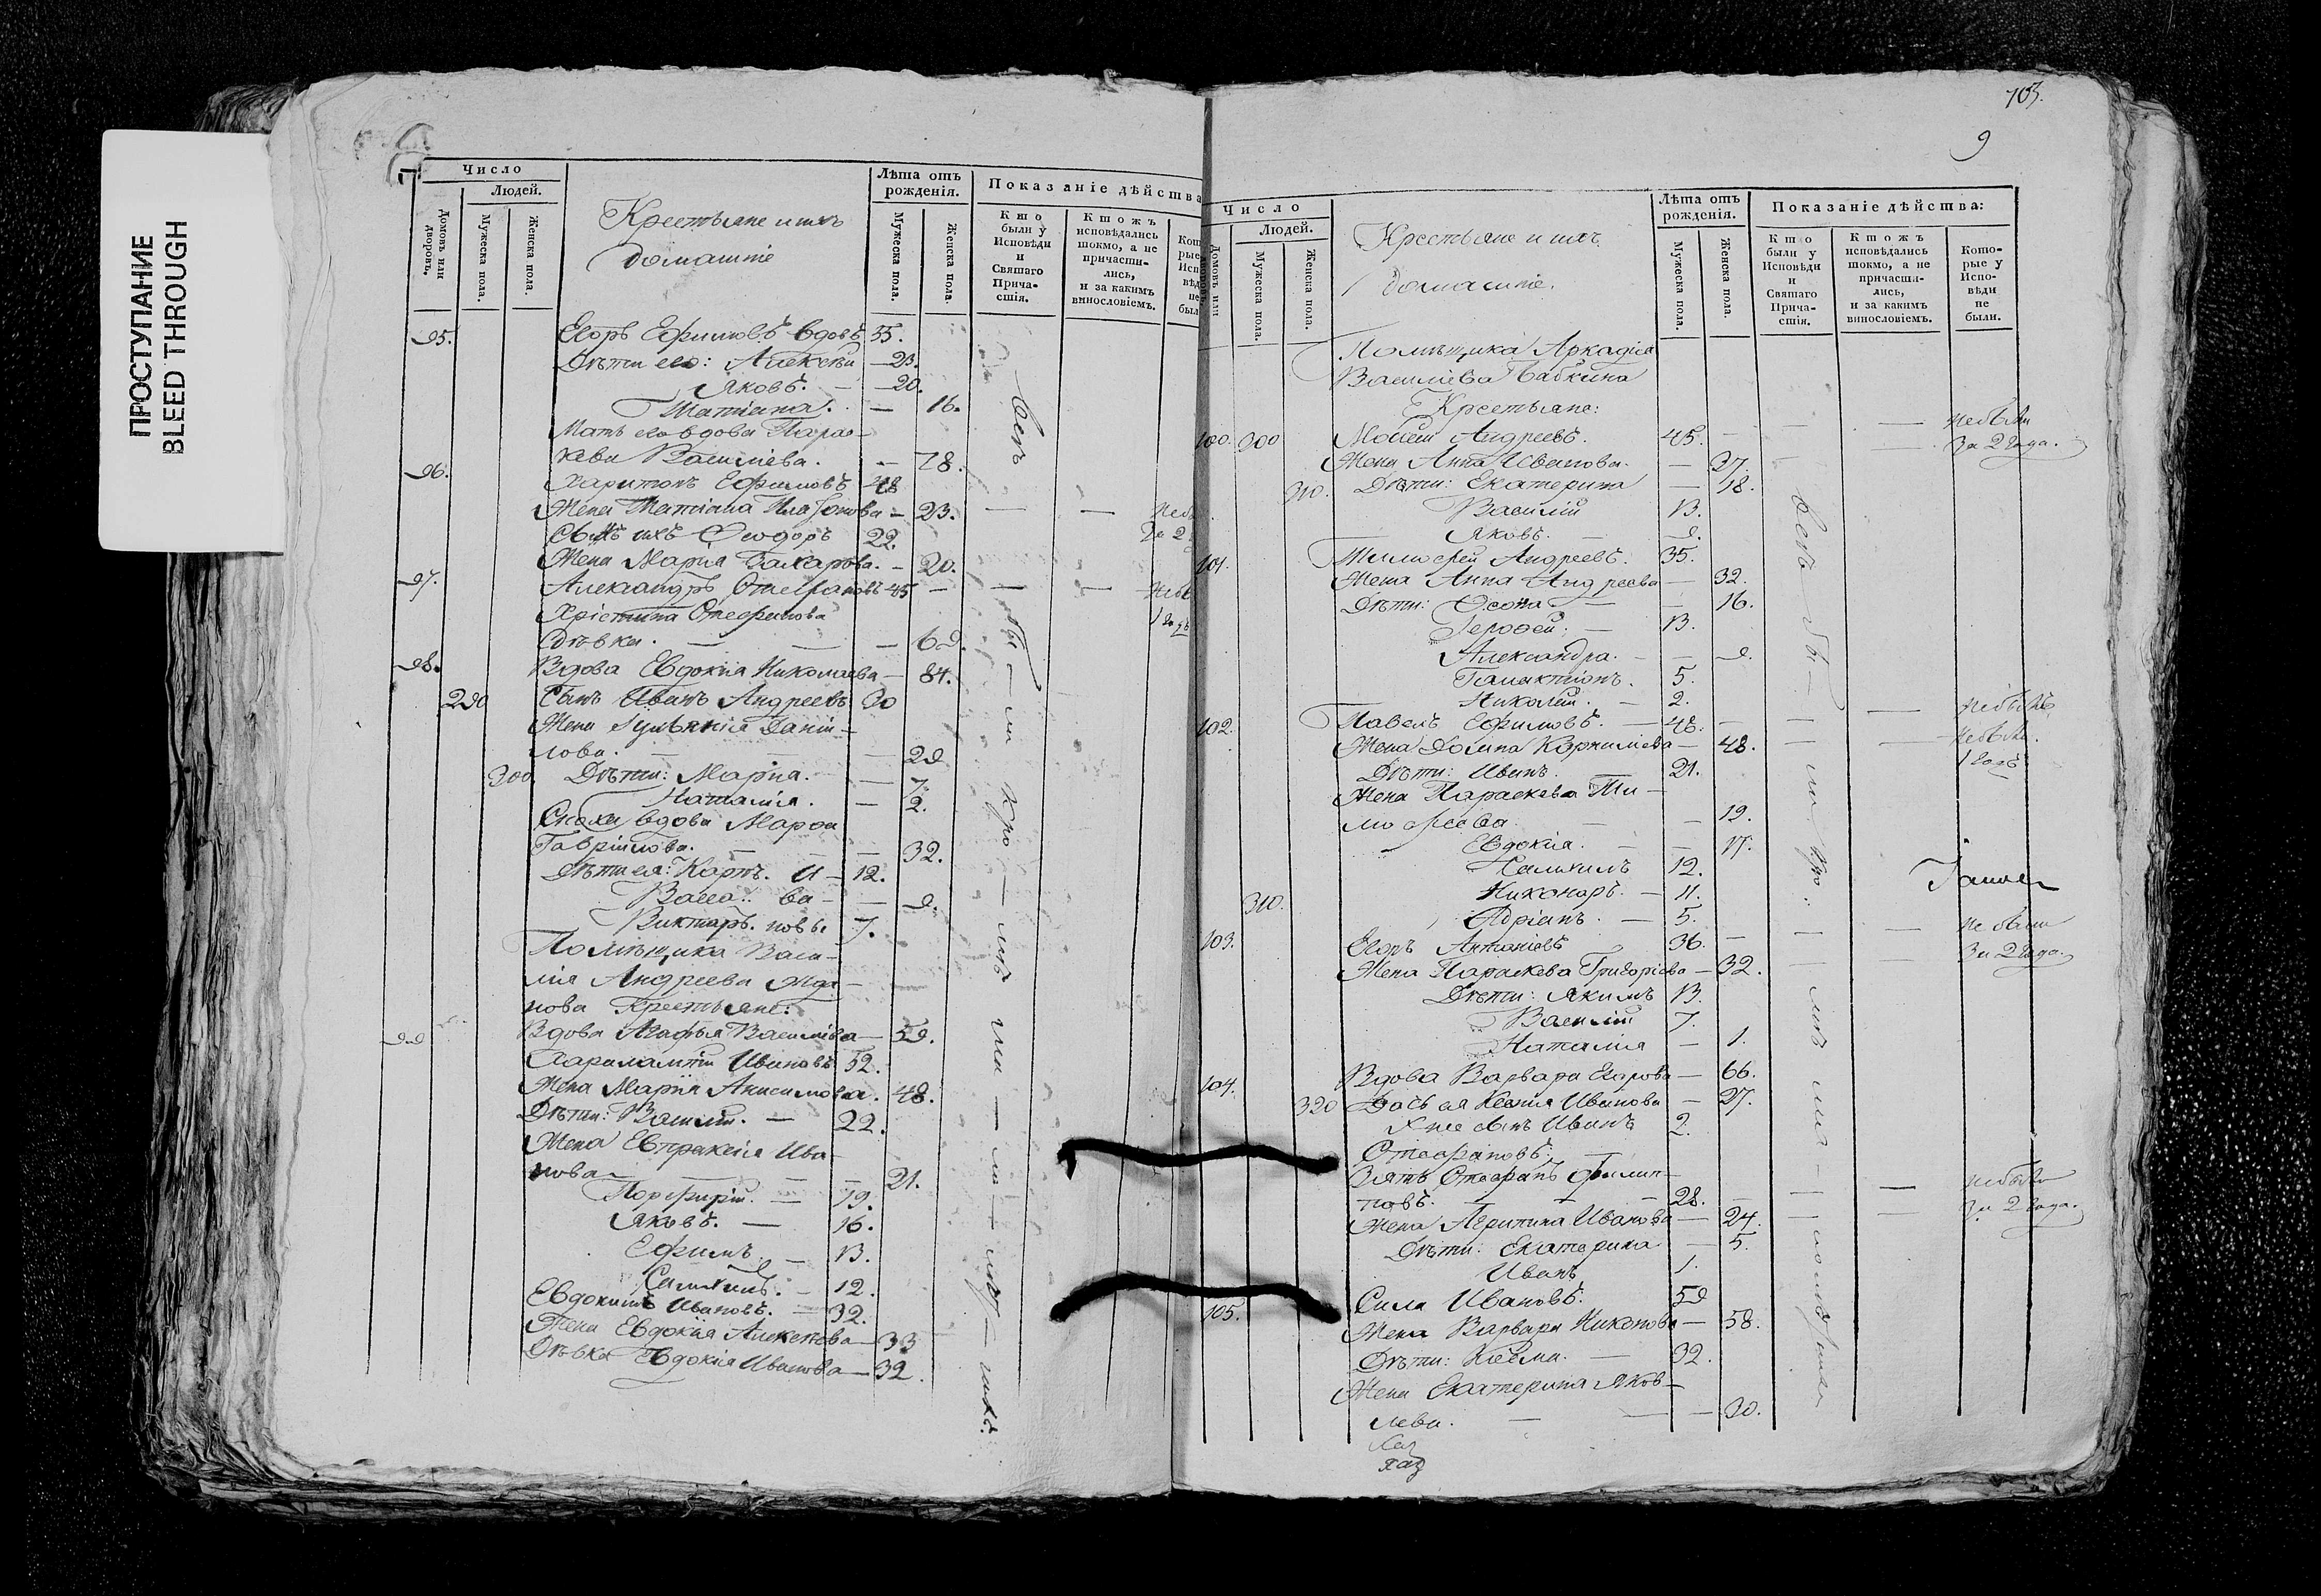 ПРОСТУПАНИЕ
BLEED THROUGH
Число
Людей.
Домовъ или дворовъ.
Мужеска пола.
Женска пола.
Крестьяне и ихъ
домашніе
Лѣта отъ рожденія.
Мужеска пола.
Женска пола.
Показаніе дѣйства
Кто были у Исповѣди и Святаго Причастія.
Ктожъ исповѣдались токмо, а не причастились, и за какимъ винословіемъ.
95. Егоръ Ефимовъ вдовъ 35.
Дѣти его: Алексѣй — 23.
Яковъ. — 20.
Татіана. — 16.
Мать его вдова Парас-
кева Василіева. — 78.
96. Харитонъ Ефимовъ 48
Жена Татіана — 23.
Сынъ ихъ Ѳеодоръ 22.
Жена Марія Захарова. — 20.
97. Александръ Стефановъ 45 —
Христина Стефанова
дѣвка. — — 69.
98. Вдова Евдокіа Николаева — 84.
290 Сынъ Иванъ Андреевъ 30
Жена Гуліаніа Даніи-
лова. — 29
300 Дѣти: Маріа. — 7.
Наталіа. — 2.
Сноха вдова Марѳа
Гавріилова. — — 32.
Дѣти ея: Карпъ. И — 12.
Васса. ва — — 9.
Викторъ. новы 7.
Помѣщика Васи-
лія Андреева Жда-
нова Крестьяне:
99 Вдова Агафья Василіева — 59.
Харлампій Ивановъ 52.
Жена Маріа Анисимова. 48.
Дѣти: Василій. — 22.
Жена Евпраксіа Ива-
нова — — 21.
Порфирій. — 19.
Яковъ. — 16.
Ефимъ. — 13.
12.
Евдокимъ Ивановъ. — 32.
Жена Евдокіа Алексѣева — 33
Дѣвка Евдокіа Иванова — 32.
103.
9
Число
Людей.
Домовъ или
Мужеска пола.
Женска пола.
Крестьяне и ихъ
домашніе.
Лѣта отъ рожденія.
Мужеска пола.
Женска пола.
Показаніе дѣйства:
Кто были у Исповѣди и Святаго Причастія.
Ктожъ исповѣдались токмо, а не причастились, и за какимъ винословіемъ.
Которые у Исповѣди не были.
Помѣщика Аркадіа
Василіева Бабкина
Крестьяне:
100. 300 Моисей Андреевъ. 45. — — — не были
Жена Анна Иванова. — 37. за 2 года.
310. Дѣти: Екатерина — 18.
Василій 13.
Яковъ. 9.
101. Тимоѳей Андреевъ. 35.
Жена Анна Андреева — 32.
Дѣти: — 16.
Іероѳей. — 13.
Александра. — — 9.
Галактіонъ. 5.
Николай. — 2.
102. Павелъ Ефимовъ. — 48. — — — не былъ
Жена Домна Корниліева — 48. — — не была.
Дѣти: Иванъ. 21. 1 годъ
Жена Параскева Ти-
моѳеева — — 19.
Евдокіа. — — 17.
12.
310. Никаноръ. — 11.
Адріанъ. — 5.
103. Егоръ Антоніевъ 36. — — не были
Жена Параскева Григоріева — 32. за 2 года.
Дѣти: Якимъ 13.
Василій 7.
Наталіа — 1.
104. Вдова Варвара Егорова — 66.
320 Дочь ея Ксеніа Иванова — 27.
У нее сынъ Иванъ 2.
Стефановъ. —
Зять Стефанъ Филип-
повъ. — — 28. — — не были
Жена Агрипина Иванова — 24. за 2 года.
Дѣти: Екатерина — 5.
Иванъ 1.
105. Сила Ивановъ. 59
Жена Варвара Никонова — 58.
Дѣти: Косма. — 32.
Жена Екатерина Яков-
лева. — — — 30.